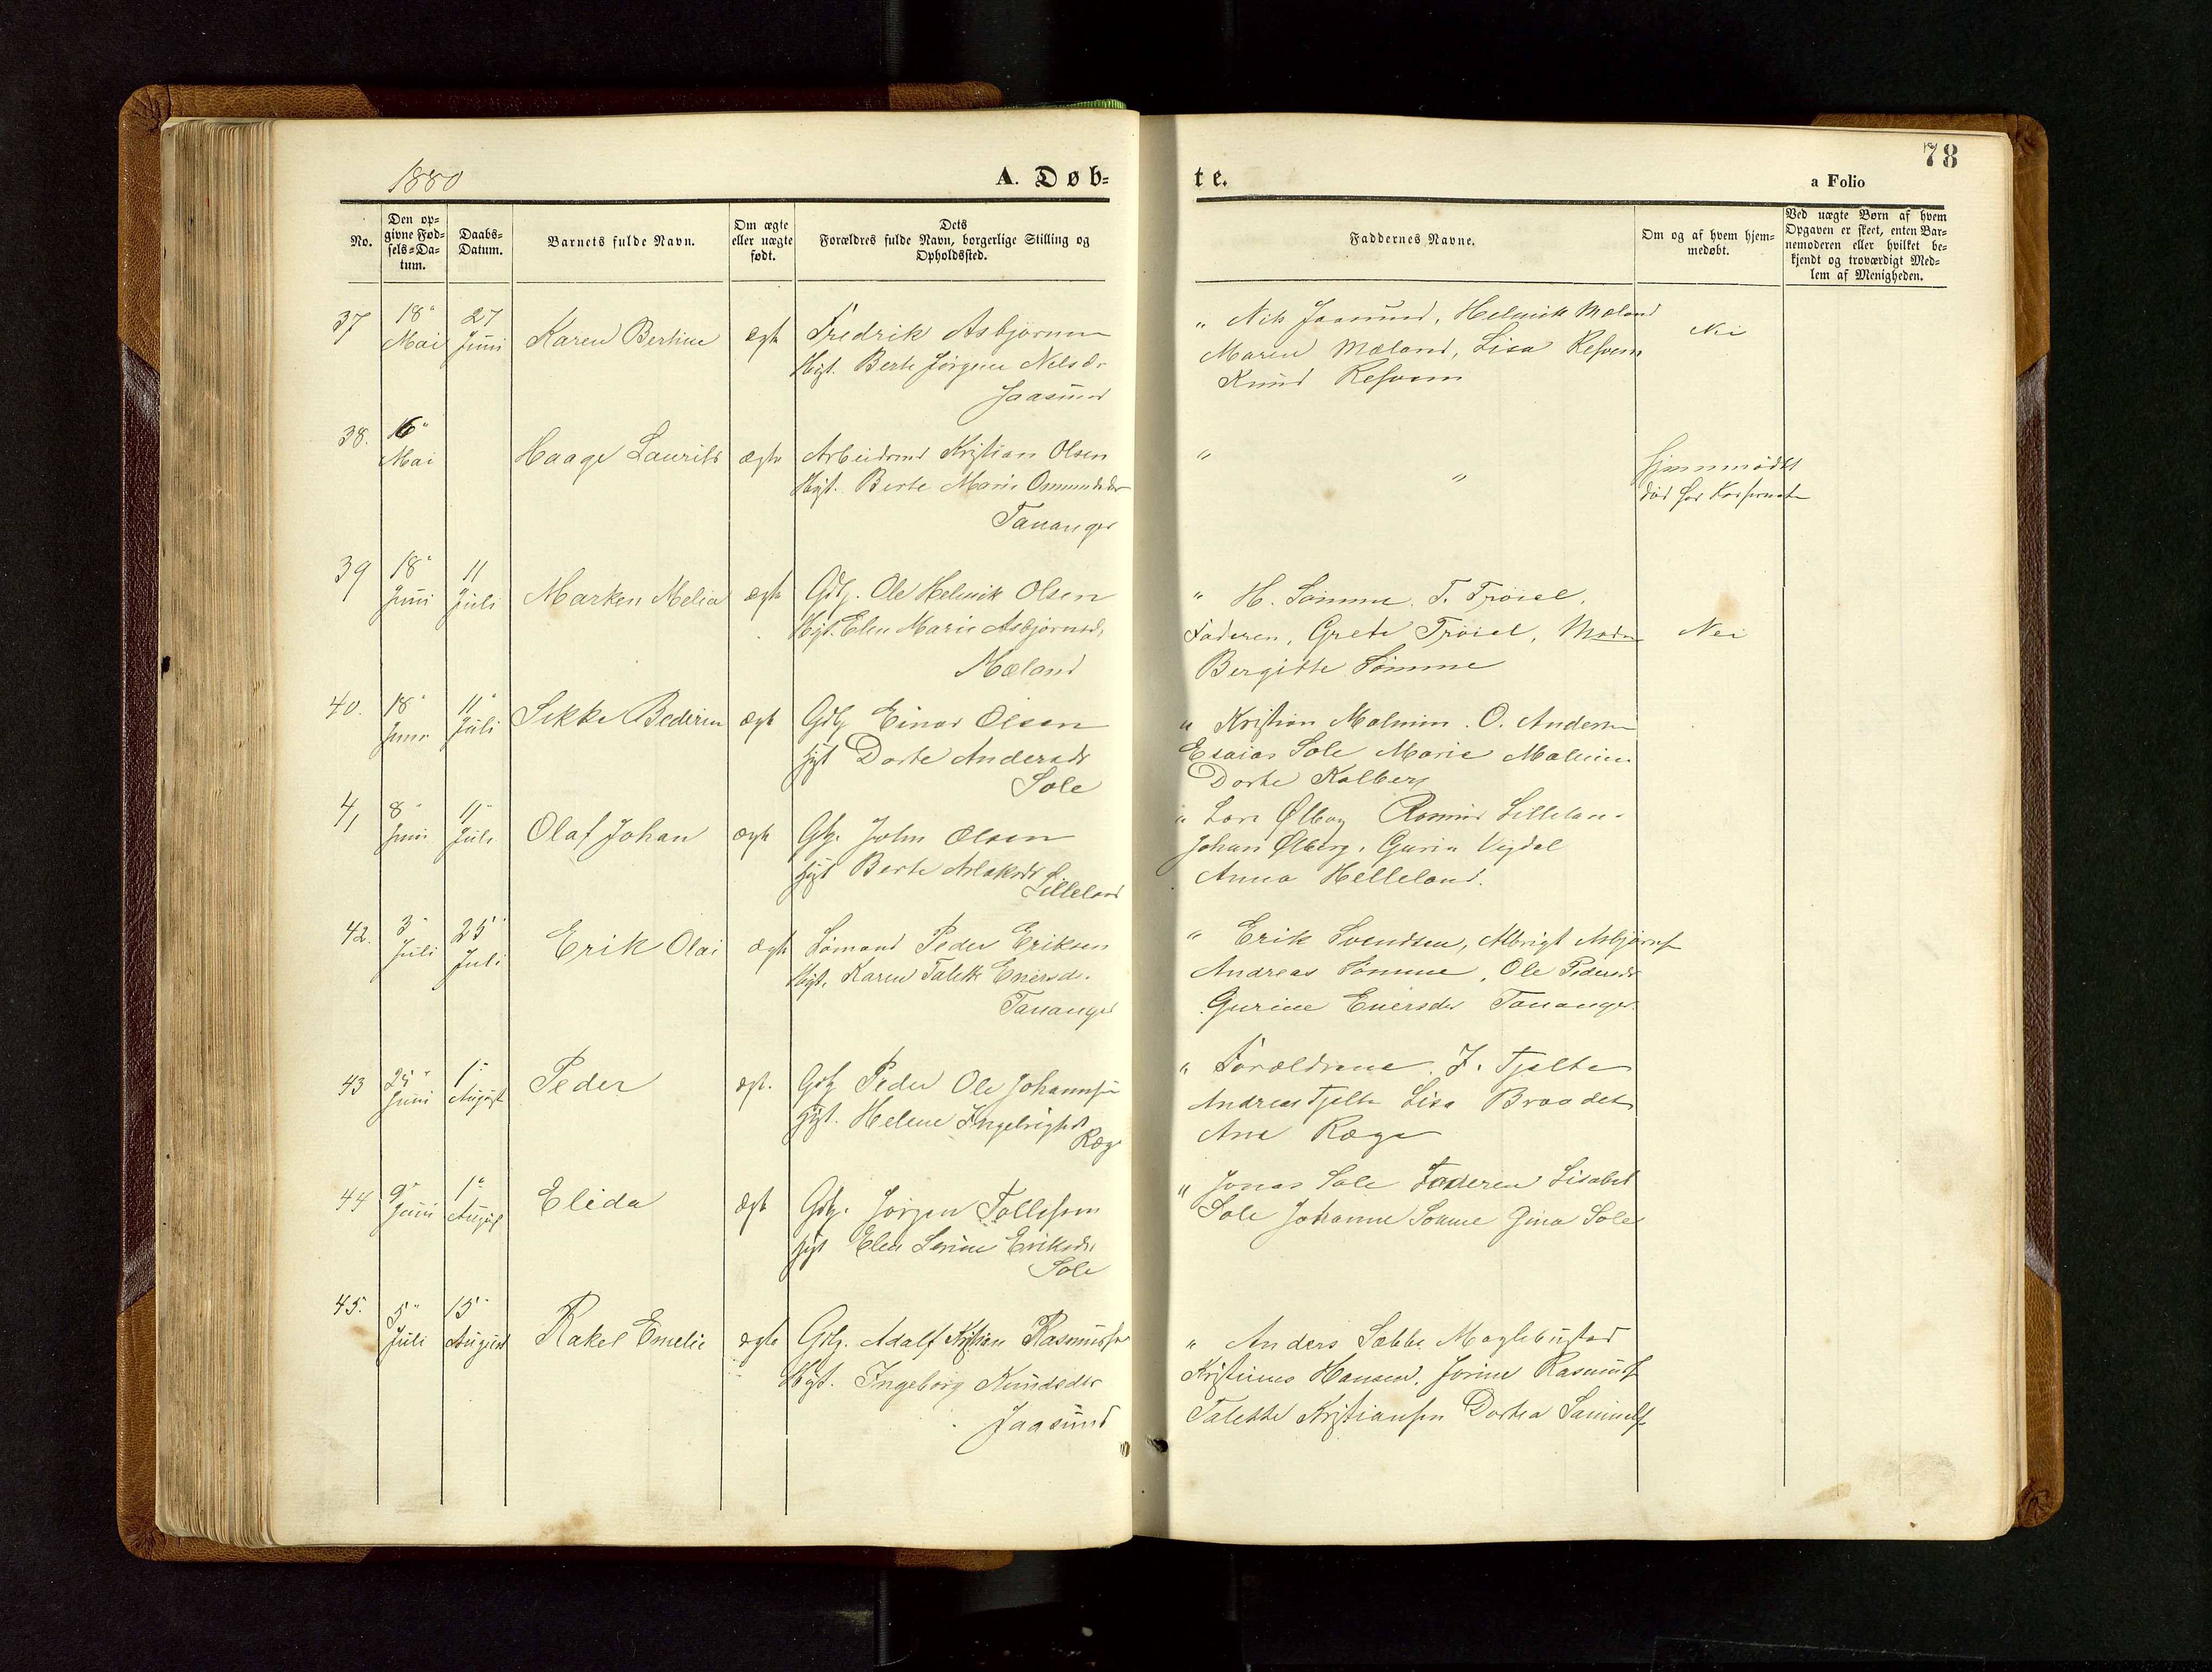 1880
A. Døb=
te.
78
a Folio
No.
Den op=
givne Fød=
sels=Da=
tum.
Daabs=
Datum.
Barnets fulde Navn.
Om ægte
eller uægte
født.
Dets
Forældres fulde Navn, borgerlige Stilling og
Opholdssted.
Faddernes Navne.
Om og af hvem hjem=
medøbt.
Ved uægte Børn af hvem
Opgaven er skeet, enten Bar=
nemoderen eller hvilket be=
kjendt og troværdigt Med=
lem af Menigheden.
37
18"
Mai
27
Juni
Karen Bertine
ægte
Fredrik Asbjørnsen
Hgt. Berte Jørgine Nelsdr
Jaasund
" Nils Jaasund, Helmik Mæland
Maren Mæland, Lisa
Knud
Nei
38.
16"
Mai
Haage Laurits
ægte
Arbeidsmd Kristian Olsen
Hgt. Berte Marie Osmundsdr
Tananger
"
"
hjemmedøbt
død før
39
18"
Juni
11
Juli
Marken Melia
ægte
Gdbr. Ole Helmik Olsen
Hgt. Elen Marie Asbjørnsd.
Mæland
" H. Sømme. T. Trøiel.
Faderen, Grete Trøiel, Moder
Bergitte Sømme
Nei
40.
18"
Juni
11"
Juli
Sikke Bederin
ægte
Gdbr Einar Olsen
Hgt Dorte Andersdr
Sole
" Kristian Malmin. O. Andersen
Esaias Sole Marie Malmin
Dorte Kolberg
41
8"
Juni
11"
Juli
Olaf Johan
ægte
Gbr. John Olsen
Hgt Berte Aslaksdr
Lilleland
" Lars Ølberg Lilleland
Johan Ølberg. Guria Vigdel
Anna Helleland.
42.
3"
Juli
25"
Juli
Erik Olai
ægte
Sømand Peder Eriksen
Hgt. Karen Talette Enersd.
Tananger
" Erik Svendsen, Albrigt Asbjørns
Andreas Sømme, Ole Pedersdr
Gurine Enersdr Tananger
43
25"
Juni
1"
August
Peder
ægt.
Gbr Peder Ole Johannsen
Hgt. Helene Ingebrigtsd
Ræge
" Forældrene. J. Tjelte
Andreas Tjelte Lisa Braadet
Ane Ræge
44
9"
Juni
1"
August
Elida
ægte
Gdbr. Jørgen Tollefsen
Hgt Elen Serine Eriksdr
Sole
" Jonas Sole Faderen Lisabet
Sole Johanne Sømme Gina Sole
45.
5"
Juli
15"
August
Rakel Emelie
ægte
Gbr. Adolf Kristian Rasmussen
Hgt. Ingeborg Knudsdr
Jaasund
" Anders Sæbbe Møglebustad
Kristines Hansen. Jorine Rasmuss
Talette Kristiansen Dortea Samuels